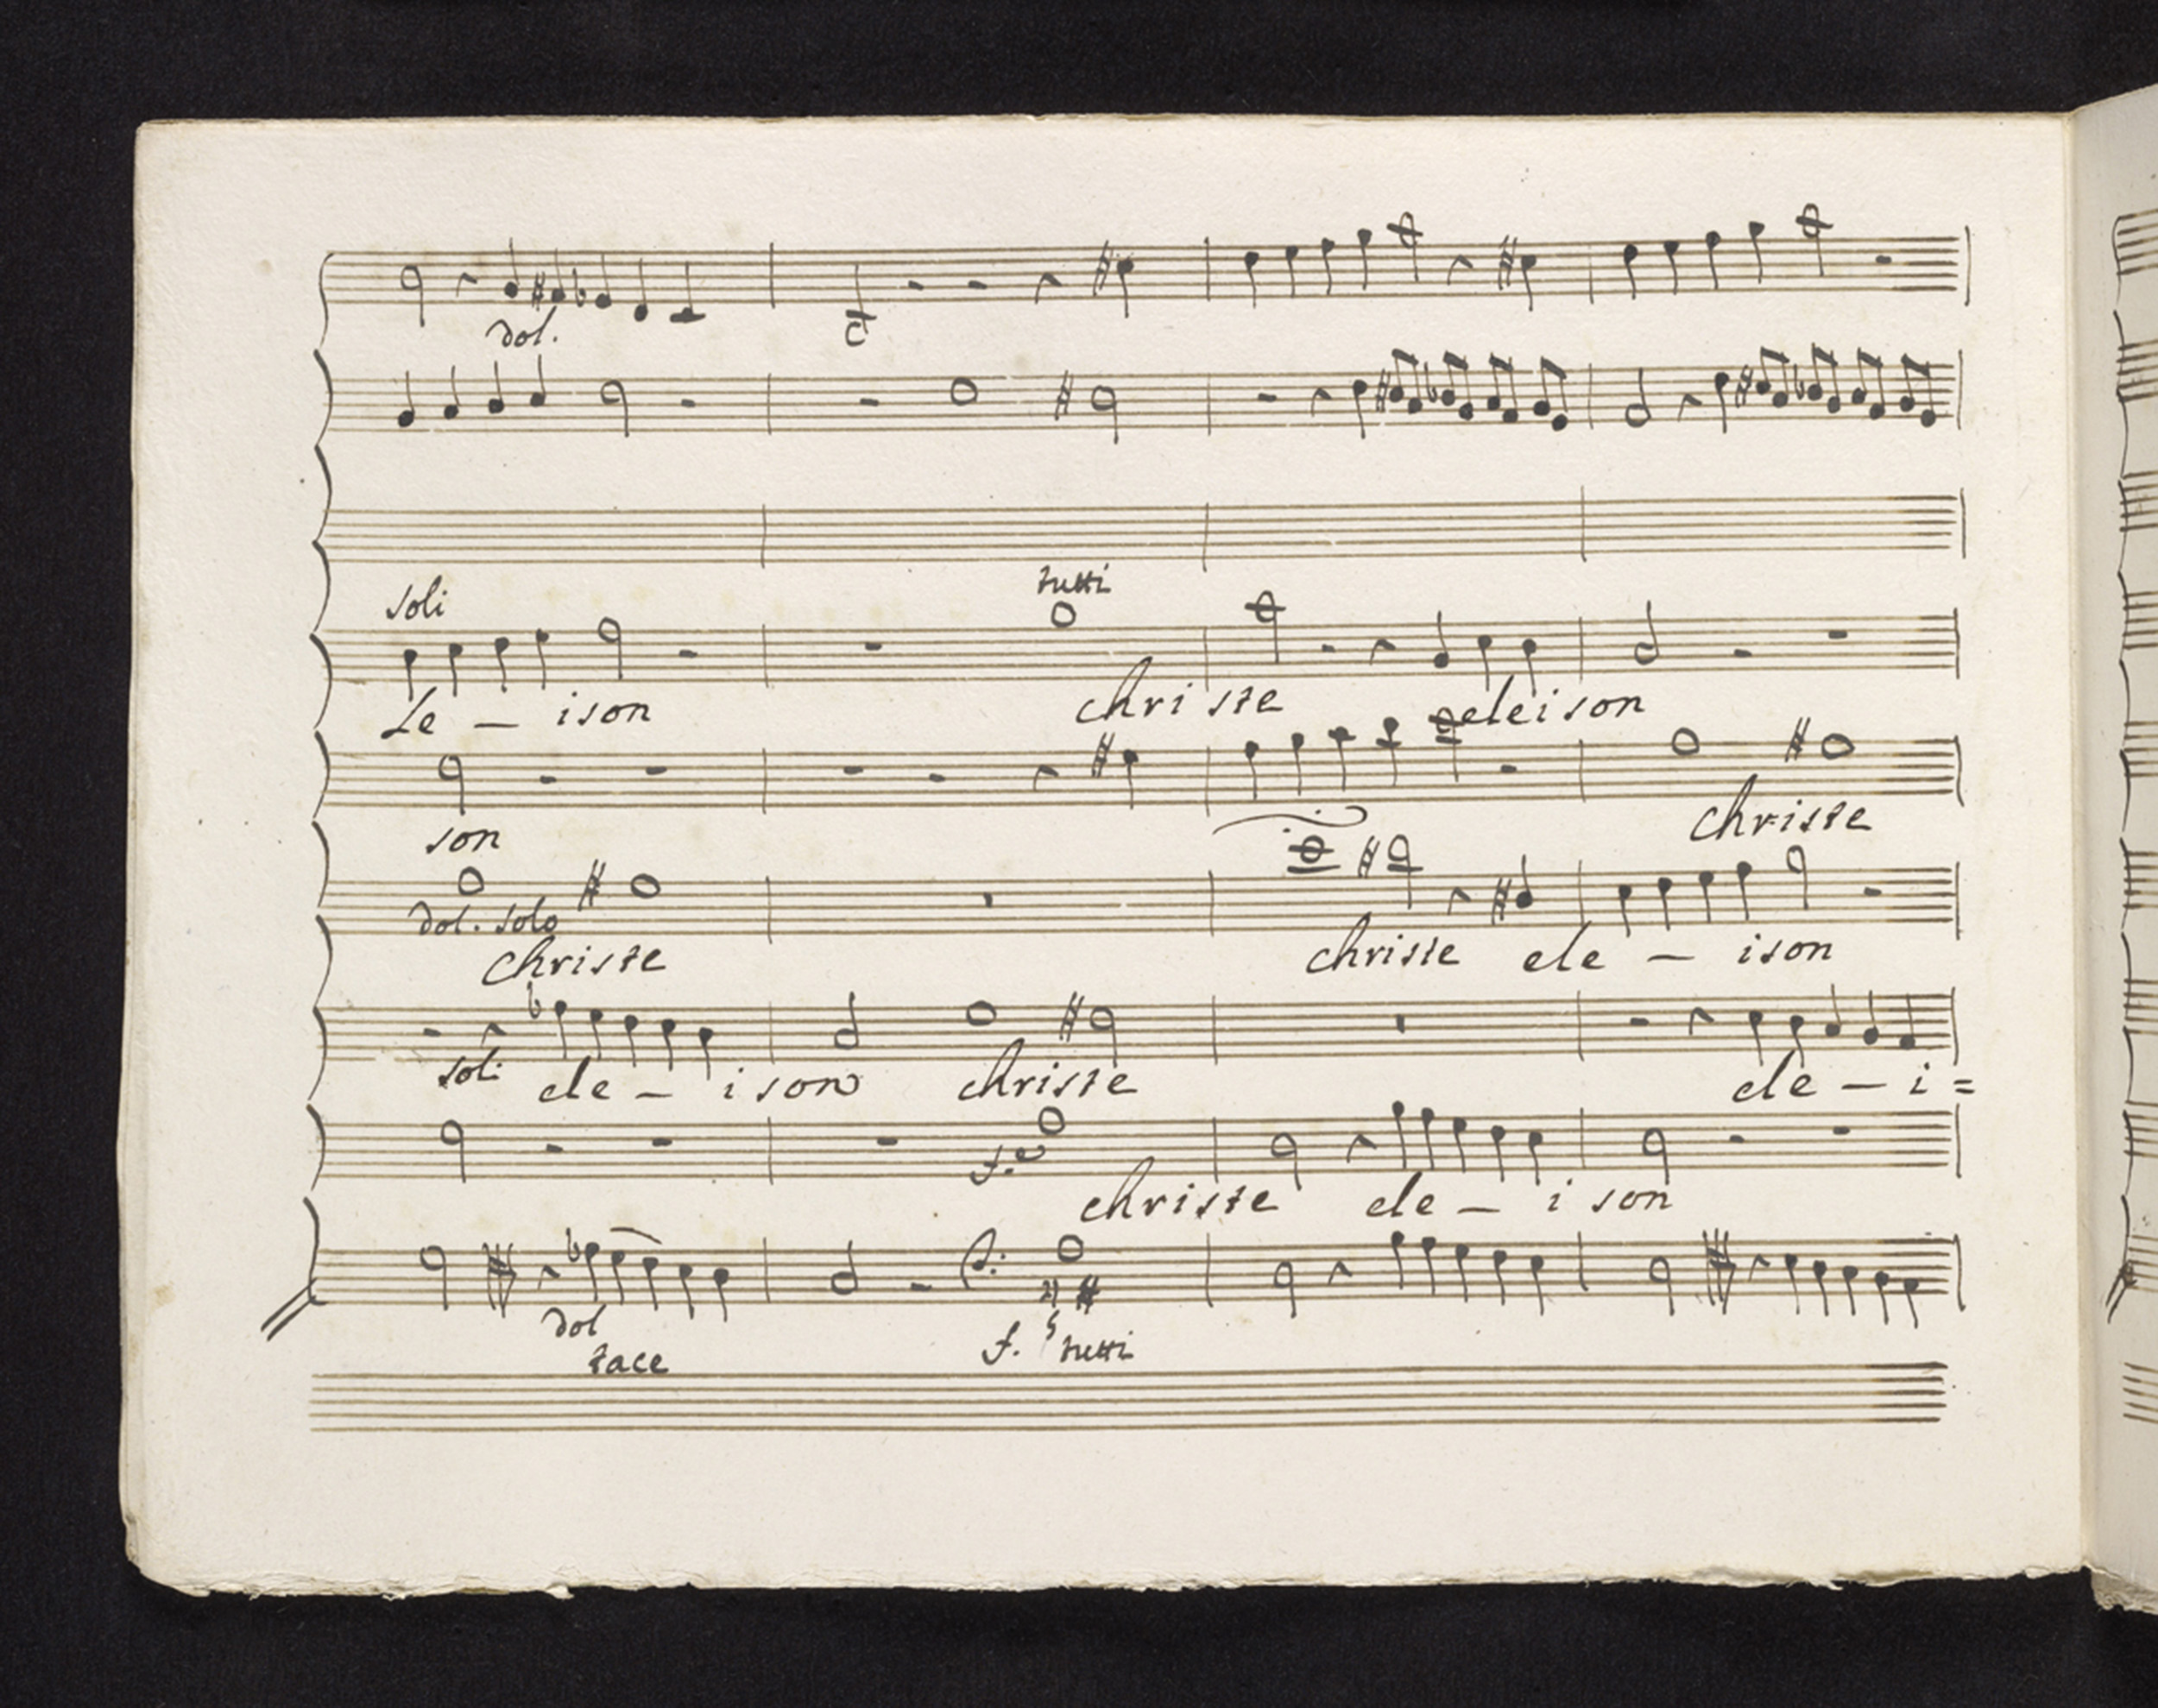 dol.
soli tutti
Le – ison christe eleison
son christe
dol. solo
christe christe ele – ison
soli ele – ison christe ele – i =
f.
christe ele – i son
dol f. tutti
tace